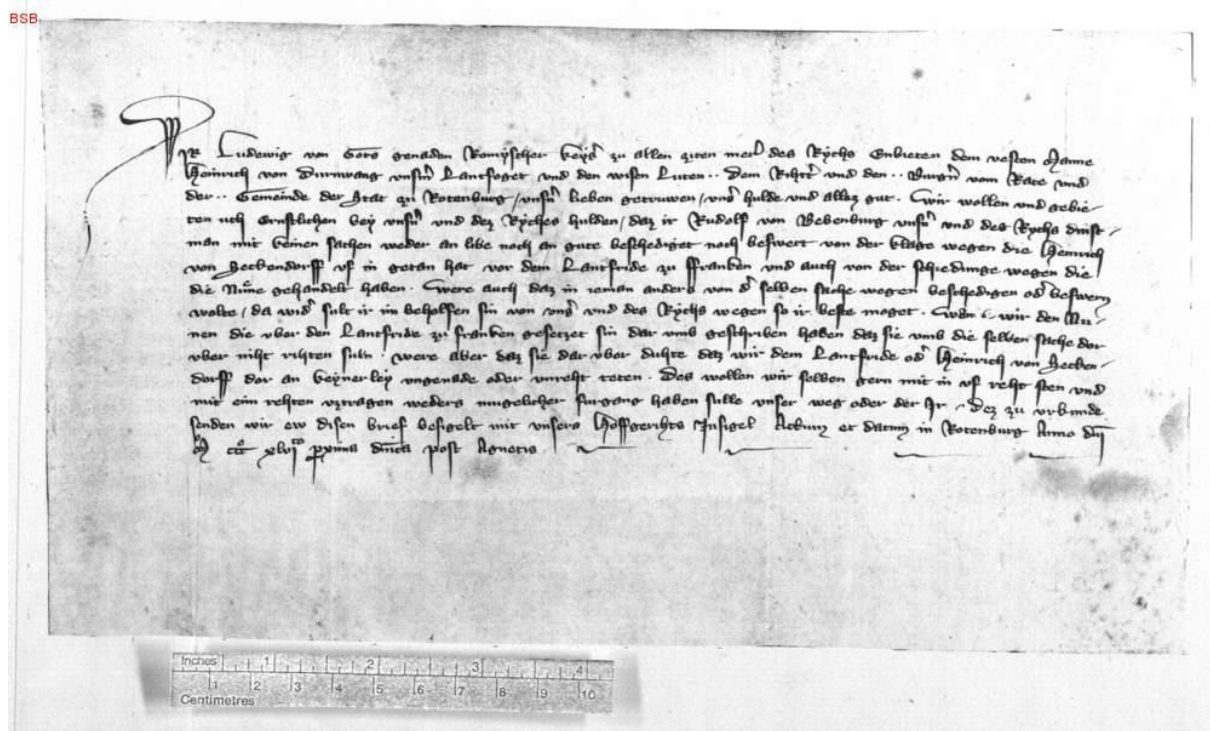 BSB
WIR Ludewig von Gots genaden Romyscher keys͛ zu allen ziten mer͛ des Rychs Enbieten dem vesten Manne
Heinrich von Durrwang unsm͛ Lantfoget und den wisen Luten ·· Dem Riht͛ und den ·· Burg͛n vom Rate und
der ·· Gemeinde der Stat zu Rotenburg / unsn͛ lieben getruwen / uns͛ hulde und allez gut · Wir wollen und gebie-
ten uch Ernstlichen bey unsn͛ und dez Ryches hulden / daz ir Rudolf von Bebenburg unsn͛ und des Rychs dinst-
man mit keinen sachen weder an libe noch an gute beschediget noch beswert von der klage wegen die Heinrich
von Seckendorff uf in getan hat vor dem Lantfride zu ffranken und auch von der schiedunge wegen die
die Nune gehandelt haben · Were auch daz in ieman anders von d͛ selben sache wegen beschedigen od͛ beswern
wolte / da wid͛ sult ir im beholfen sin von uns͛ und des Rychs wegen so ir beste moget · Wan wir den Nu-
nen die vber den Lantfride zu franken gesetzet sin dar vmb geschriben haben daz sie vmb die selben sache dor
vber niht rihten suln · were aber daz sie dar vber duhte daz wir dem Lantfride od͛ Heinrich von Secken-
dorff dor an keynerley vngenade oder vnreht teten · Des wollen wir selben gern mit in uf reht sten und
mit ein rehten vztragen weders mugelicher furgang haben sulle unser weg oder der Ir · Dez zu vrkunde
senden wir ew disen brief besigelt mit unsers Hoffgerihts Insigel Actum et datum in Rotenburg Anno dn̄i
M ccc xlvi proxima dn̄ica post Agnetis
Inches 1 2 3 4
1 2 3 4 5 6 7 8 9 10
Centimetres